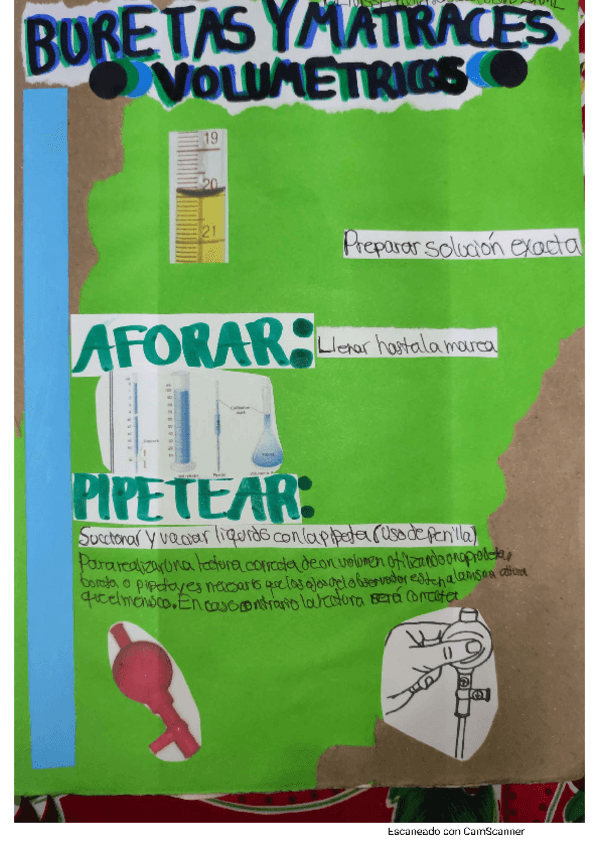 BURETAS Y MATRACES
VOLUMETRICOS
19
20
21
Preparar solución exacta
AFORAR:
Llenar hasta la marca
PIPETEAR:
Succionar y vaciar liquidos con la pipeta (Uso de perilla)
Para realizar una lectura correcta de un volumen utilizando una probeta,
bureta o pipeta, es necesario que los ojos del observador esten a la misma altura
que el menisco. En caso contrario la lectura será correcta
Escaneado con CamScanner